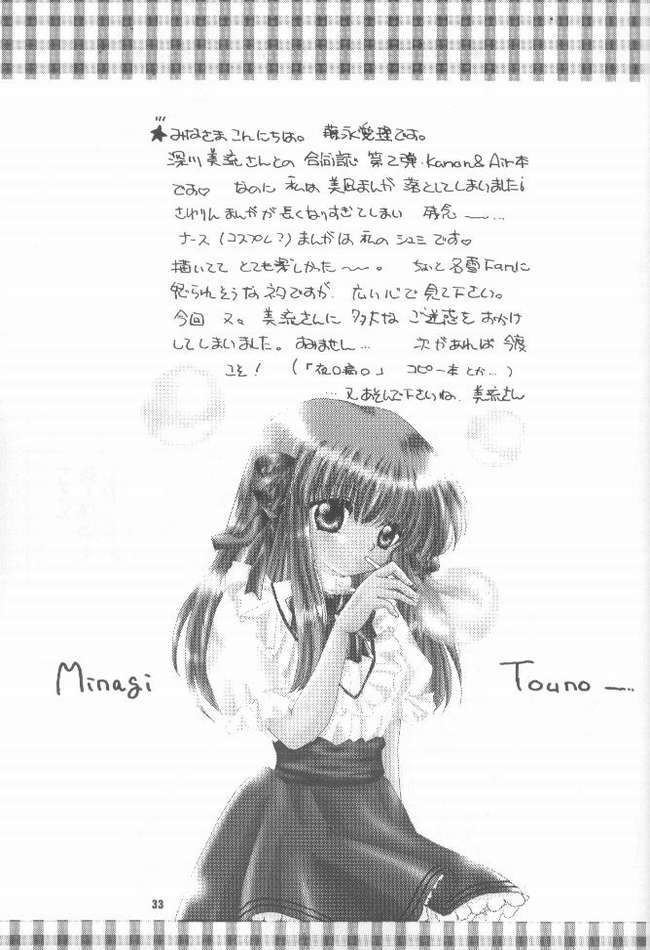 ★みなさまこんにちは。 藤永愛理です。
深川美流さんとの 合同誌 第2弾.Kanon&Air本
です♡ なのに 私は 美凪まんが 落としてしまいました¡
さわりんまんがが長くなりすぎてしまい 残念〜…
ナース(コスプレ?)まんがは 私の シュミです♡
描いてて とても楽しかった〜。 ちょっと名雪Fanに
怒られそうなネタですが、広い心で見て下さい。
今回 又。 美流さんに 多大な ご迷惑を おかけ
してしまいました。 すみません… 次があれば 今度
こそ! (「夜○病○」 コピー本 とか…)
…又あそんで下さいね、美流さん
Minagi
Touno—…
33